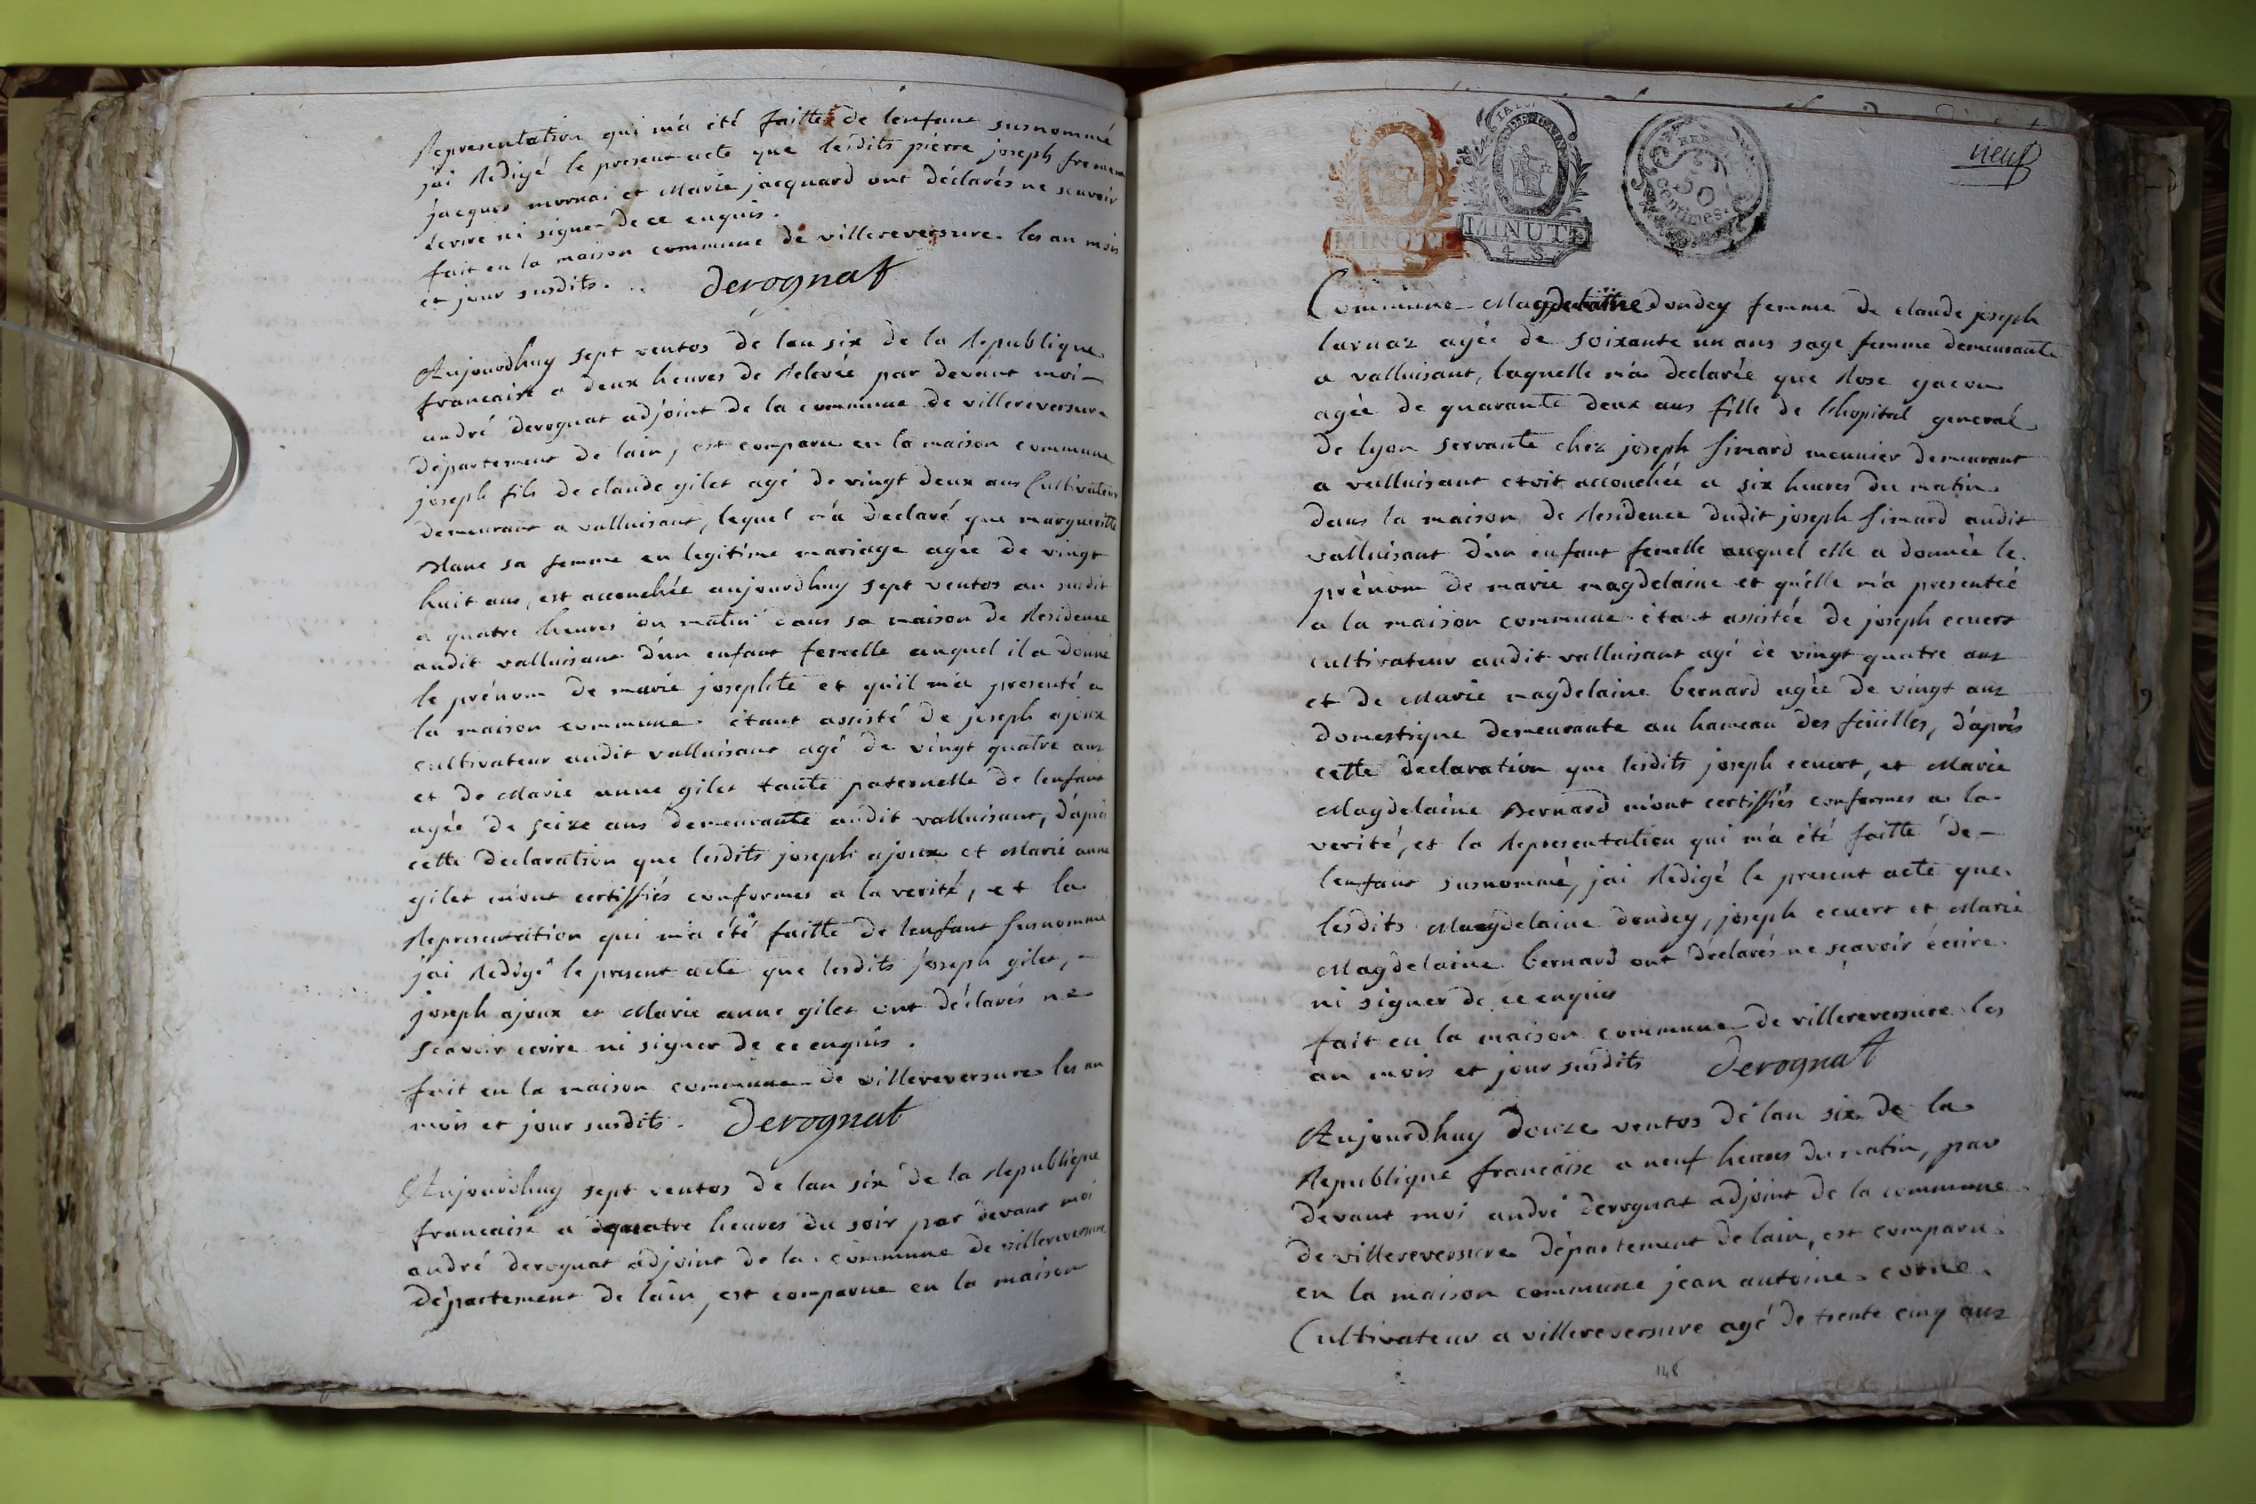 Representation qui m'a été faitte de lenfant susnommé
j'ai Redigé le present acte que lesdits pierre joseph
jacques mornai et Marie jacquard ont déclarés ne scavoir
ecrire ni signer de ce enquis.
fait en la maison commune de villereversure les an mois
et jour susdits. .. Derognat
Aujourdhuy sept ventos de lan six de la Republique
francaise a deux heures de Relevée par devant moi
andré derognat adjoint de la commune de villereversure
département de lain, est comparu en la maison commune
joseph fils de claude gilet agé de vingt deux ans Cultivateur
demeurant a valluisant, lequel m'a declaré que margueritte
blanc sa femme en legitime mariage agée de vingt
huit ans, est accouchée aujourdhuy sept ventos an susdit
a quatre heures du matin dans sa maison de Residence
audit valluisant d'un enfant femelle auquel il a donné
le prénom de marie josephte et qu'il m'a presenté a
la maison commune. étant assisté de joseph ajoux
cultivateur audit valluisant agé de vingt quatre ans
et de Marie anne gilet tante paternelle de lenfant
agée de seize ans demeurante audit valluisant, d'après
cette declaration que lesdits joseph ajoux et Marie anne
gilet m'ont certiffiés conformes a la verité, et la
Representation qui m'a été faitte de lenfant susnommé
j'ai Redigé le present acte que lesdits joseph gilet,
joseph ajoux et Marie anne gilet ont déclarés ne
scavoir ecrire ni signer de ce enquis.
fait en la maison commune de villereversure les an
mois et jour susdits. Derognat
Aujourdhuy sept ventos de lan six de la Republique
francaise a quatre heures du soir par devant moi
andré derognat adjoint de la commune de villereversure
département de lain, est comparue en la maison
neuf
MINUTE
4 S
MINUTE
4 S
50
centimes
Commune Magdelaine dondey femme de claude joseph
larnaz agée de soixante un ans sage femme demeurante
a valluisant, laquelle m'a declarée que Rose gacon
agée de quarante deux ans fille de l'hopital general
de lyon servante chez joseph simard meunier demeurant
a valluisant etoit accouchée a six heures du matin
dans la maison de Residence dudit joseph simard audit
valluisant d'un enfant femelle auquel elle a donnée le
prénom de marie magdelaine et qu'elle m'a presentée
a la maison commune étant assistée de joseph ecuert
cultivateur audit valluisant agé de vingt quatre ans
et de Marie magdelaine bernard agée de vingt ans
domestique demeurante au hameau des feüilles, d'après
cette declaration que lesdits joseph ecuert, et Marie
Magdelaine Bernard m'ont certiffiés conformes a la
verité, et la Representation qui m'a été faitte de
lenfant susnommé, j'ai Redigé le present acte que
lesdits Magdelaine dondey, joseph ecuert et Marie
Magdelaine bernard ont déclarés ne scavoir écrire
ni signer de ce enquis
fait en la maison commune de villereversure les
an mois et jour susdits Derognat
Aujourdhuy douze ventos de lan six de la
Republique francaise a neuf heures du matin, par
devant moi andré derognat adjoint de la commune
de villereversure département de lain, est comparu
en la maison commune jean antoine corne
Cultivateur a villereversure agé de trente cinq ans
148